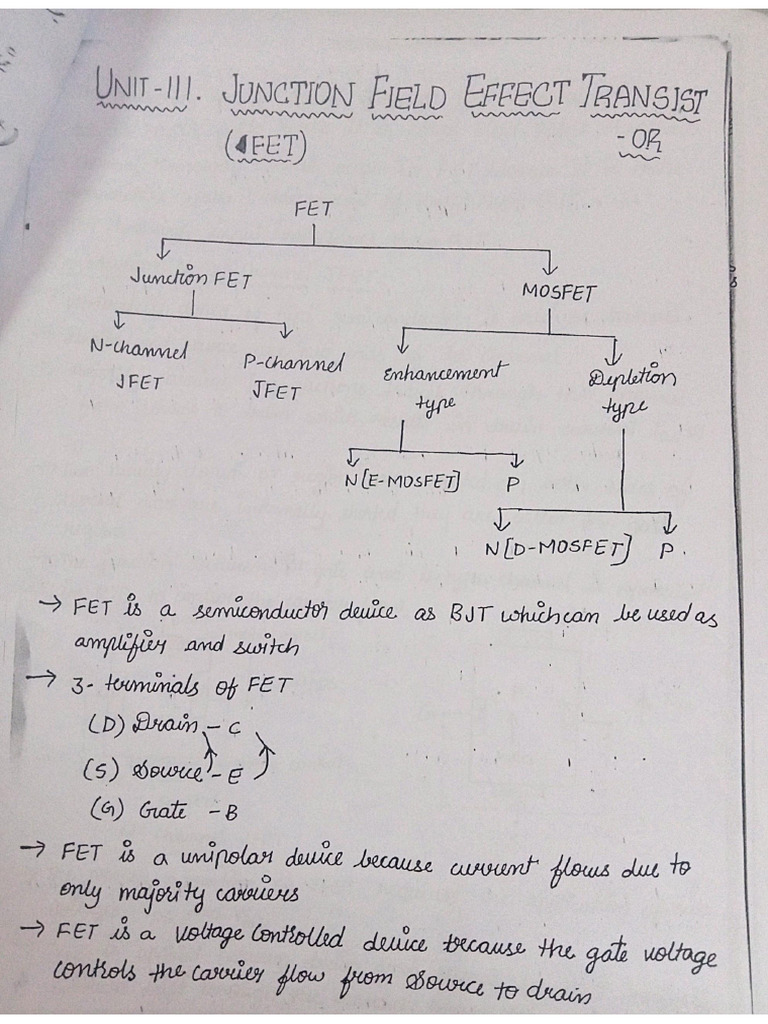 UNIT-III. JUNCTION FIELD EFFECT TRANSIST
-OR
(FET)
FET
Junction FET
MOSFET
N-channel
JFET
P-channel
JFET
Enhancement
type
Depletion
type
N[E-MOSFET] P
N[D-MOSFET] P.
→ FET is a semiconductor device as BJT which can be used as
amplifier and switch
→ 3- terminals of FET
(D) Drain - C
(S) Source - E
(G) Gate - B
→ FET is a unipolar device because current flows due to
only majority carriers
→ FET is a voltage controlled device because the gate voltage
controls the carrier flow from source to drain